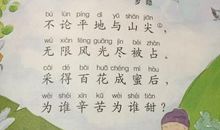 罗隐
bú lùn píng dì yǔ shān jiān
不论平地与山尖，
wú xiàn fēng guāng jìn bèi zhàn
无限风光尽被占。
cǎi dé bǎi huā chéng mì hòu
采得百花成蜜后，
wèi shéi xīn kǔ wèi shéi tián
为谁辛苦为谁甜？